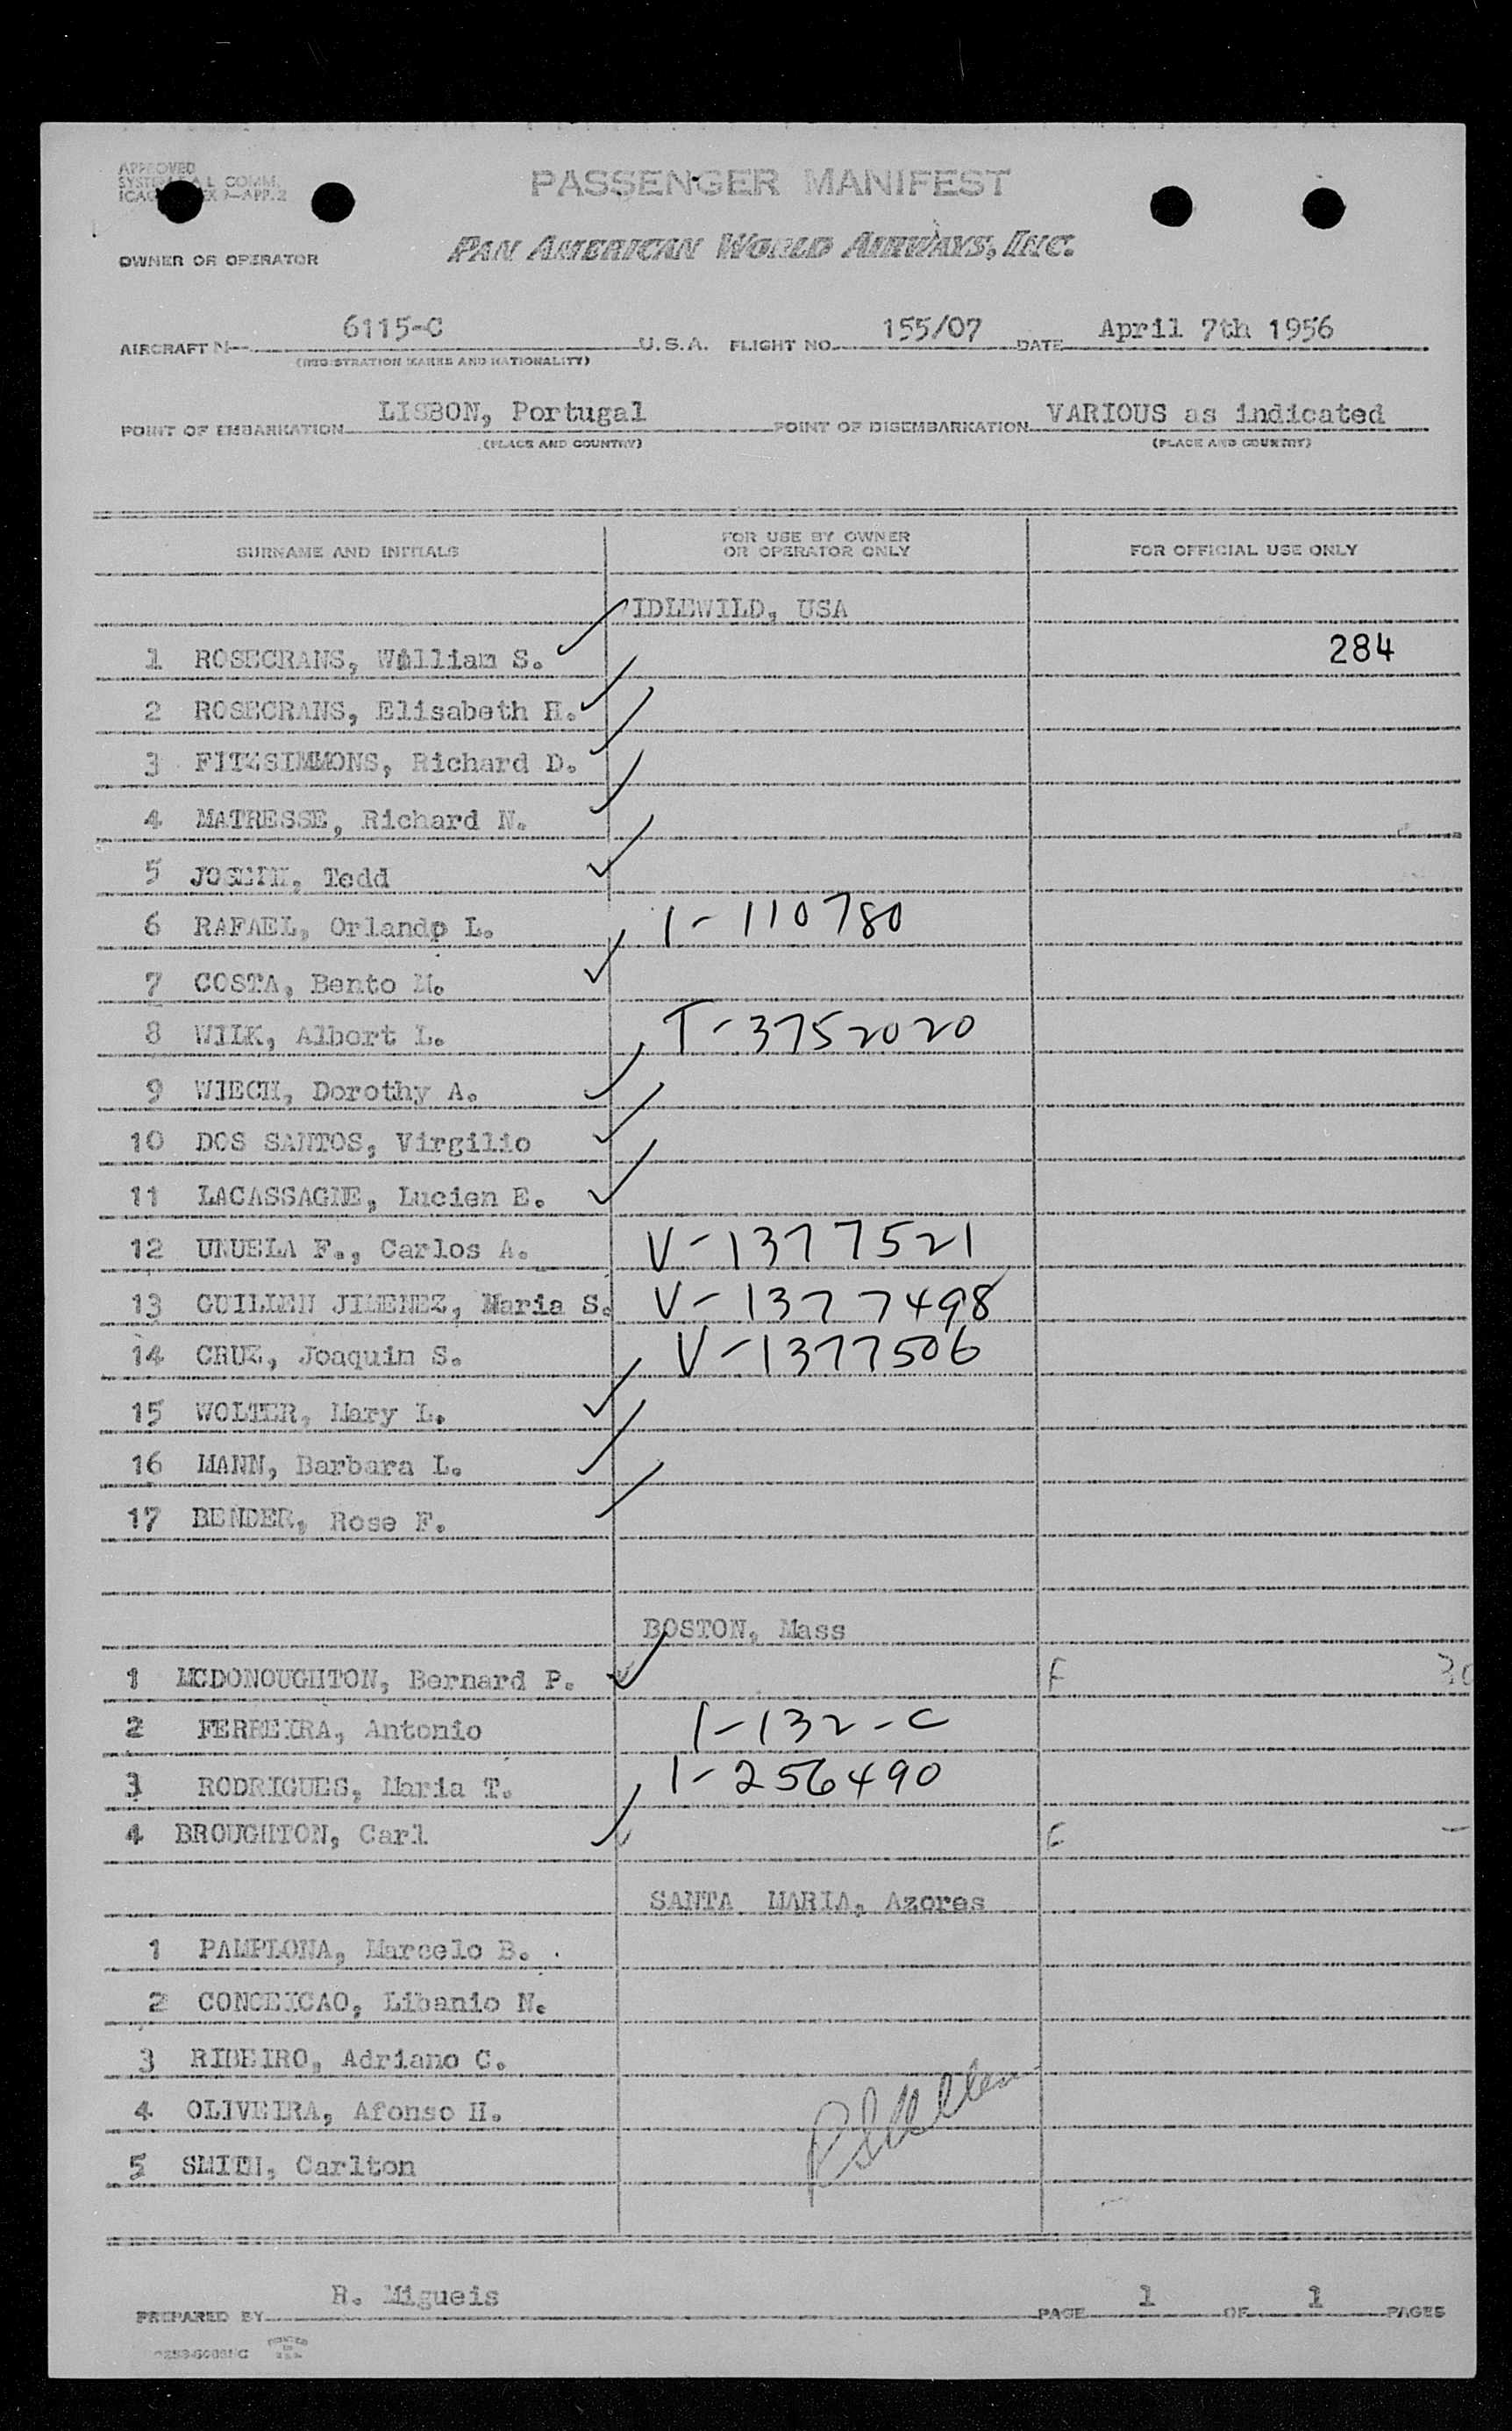 APPROVED
COMM.
PASSENGER MANIFEST
OWNER OR OPERATOR
PAN AMERICAN WORLD AIRWAYS, INC.
AIRCRAFT N- 6115-C U.S.A. FLIGHT NO. 155/07 DATE April 7th 1956
(REGISTRATION MARKS AND NATIONALITY)
POINT OF EMBARKATION LISBON, Portugal POINT OF DISEMBARKATION VARIOUS as indicated
(PLACE AND COUNTRY) (PLACE AND COUNTRY)
SURNAME AND INITIALS FOR USE BY OWNER OR OPERATOR ONLY FOR OFFICIAL USE ONLY
IDLEWILD, USA
1 ROSECRANS, William S. 284
2 ROSECRANS, Elisabeth H.
3 FITZSIMMONS, Richard D.
4 MATRESSE, Richard N.
5 Tedd
6 RAFAEL, Orlando L. 1-110780
7 COSTA, Bento M.
8 WILK, Albert L. T-3752020
9 WIECH, Dorothy A.
10 DOS SANTOS, Virgilio
11 LACASSAGNE, Lucien E.
12 UNUELA F., Carlos A. V-1377521
13 GUILLEN JIMENEZ, Maria S. V-1377498
14 CRUZ, Joaquim S. V-1377506
15 WOLTER, Mary L.
16 MANN, Barbara L.
17 BENDER, Rose F.
BOSTON, Mass
1 MCDONOUGHTON, Bernard P. F
2 FERREIRA, Antonio 1-132-C
3 RODRIGUES, Maria T. 1-256490
4 BROUGHTON, Carl
SANTA MARIA, Azores
1 PAMPLONA, Marcelo B.
2 CONCEICAO, Libanio N.
3 RIBEIRO, Adriano C.
4 OLIVEIRA, Afonso H.
5 SMITH, Carlton
PREPARED BY R. Migueis PAGE 1 OF 1 PAGES